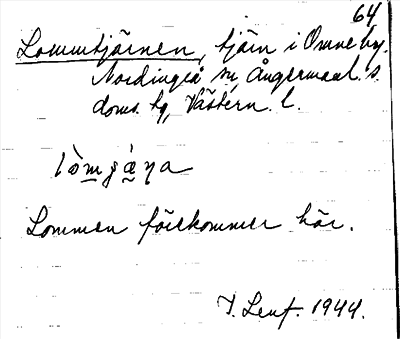 64
Lommtjärnen, tjärn i Omne by,
Nordingrå sn, Ångermanl. s.
doms. hg, Västern. l.
Lommen förekommer här.
1944.